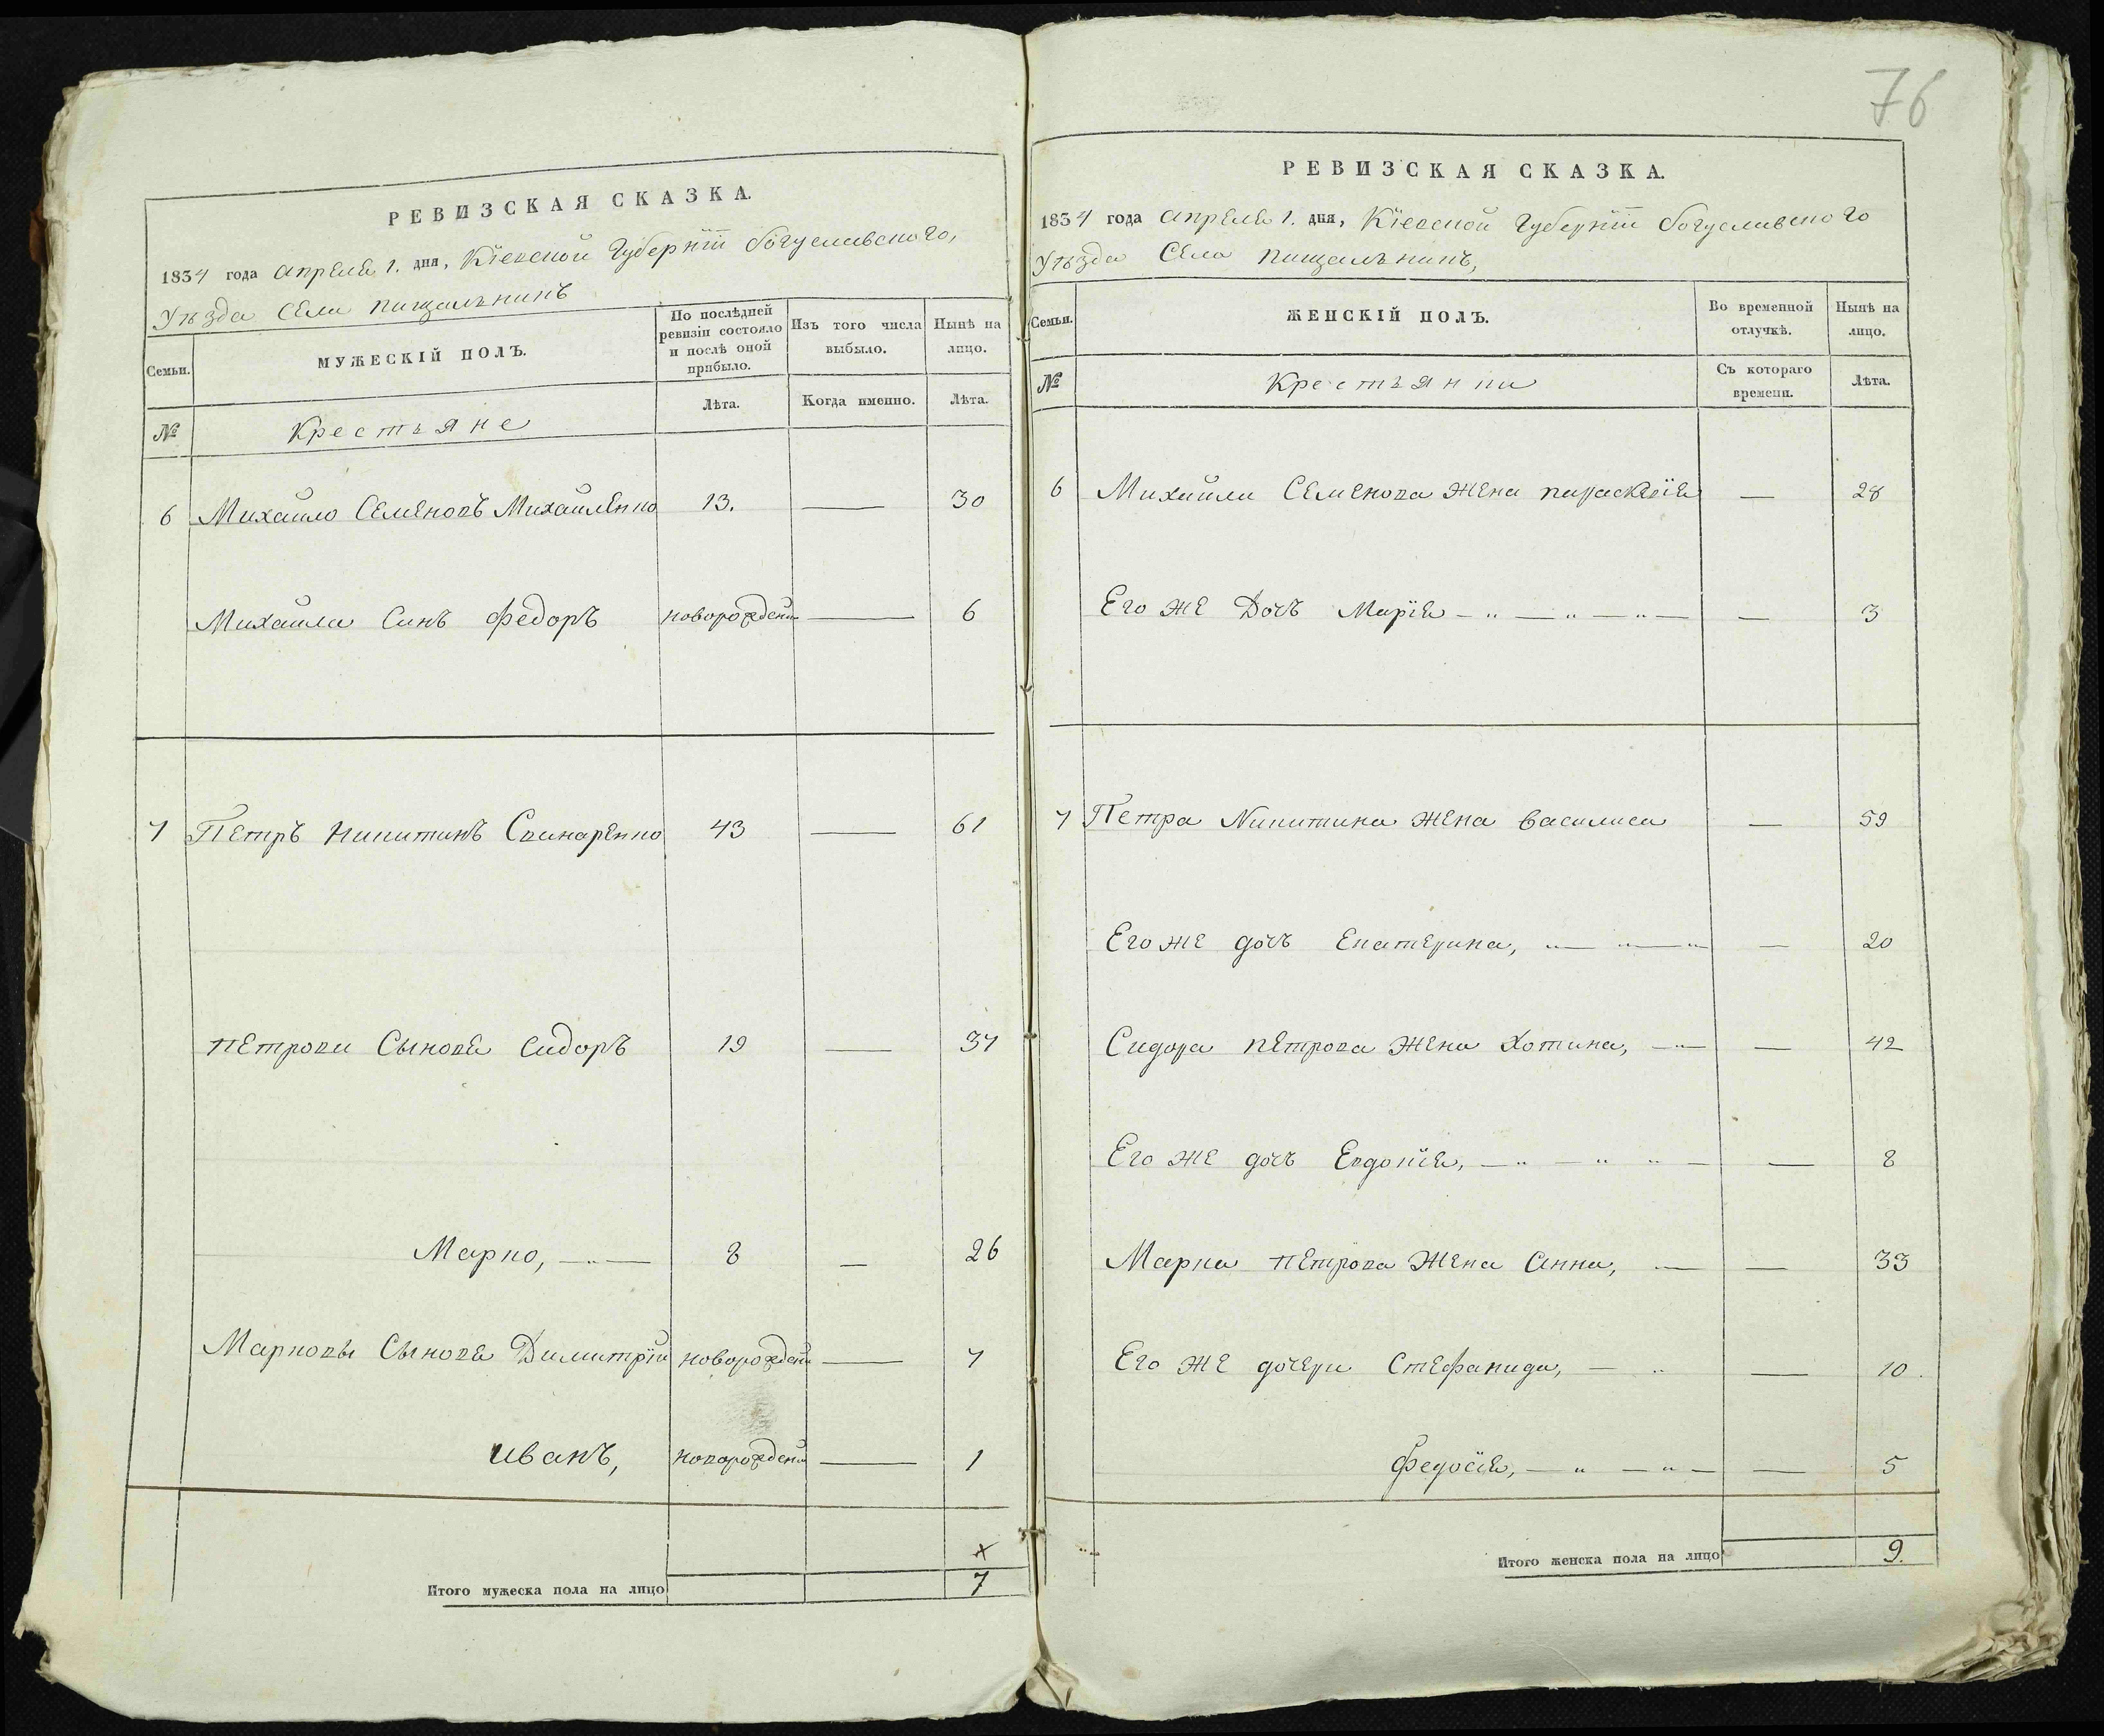 76
РЕВИЗСКАЯ СКАЗКА.
1834 года Апреля 1. дня, Кіевской Губерніи богуславского,
Уѣзда Села пищальникъ
Семьи.
МУЖЕСКІЙ ПОЛЪ.
По послѣдней ревизіи состояло и послѣ оной прибыло.
Изъ того числа выбыло.
Нынѣ на лицо.
№
Крестьяне
Лѣта.
Когда именно.
Лѣта.
6 Михайло Семеновъ Михайленко 13. — 30
Михайла Синъ Федоръ новорожденй — 6
7 Петръ Никитинъ Свинаренко 43 — 61
петрови Сынове Сидоръ 19 — 37
Марко, —„— 8 — 26
Марковы Сынове Димитрїй новорожденй — 7
Иванъ, новорожденй — 1
Итого мужеска пола на лицо 7
РЕВИЗСКАЯ СКАЗКА.
1834 года Апреля 1. дня, Кіевской Губерніи богуславского
Уѣзда Села пищальникъ,
Семьи.
ЖЕНСКІЙ ПОЛЪ.
Во временной отлучкѣ.
Нынѣ на лицо.
№
Крестьянки
Съ котораго времени.
Лѣта.
6 Михайли Семенова жена параскевїя — 28
Его же Дочъ Марїя —„—„—„— — 3
7 Петра Никитина жена василиса — 59
Его же дочъ Екатерина, „— „— „ — 20
Сидора петрова жена Хотина, —„— — 42
Его же дочъ Евдокїя, —„—„ „— — 8
Марка петрова жена Анна, — — 33
Его же дочери Стефанида, — „ — 10.
Федосїя, —„—„— — 5
Итого женска пола на лицо 9.